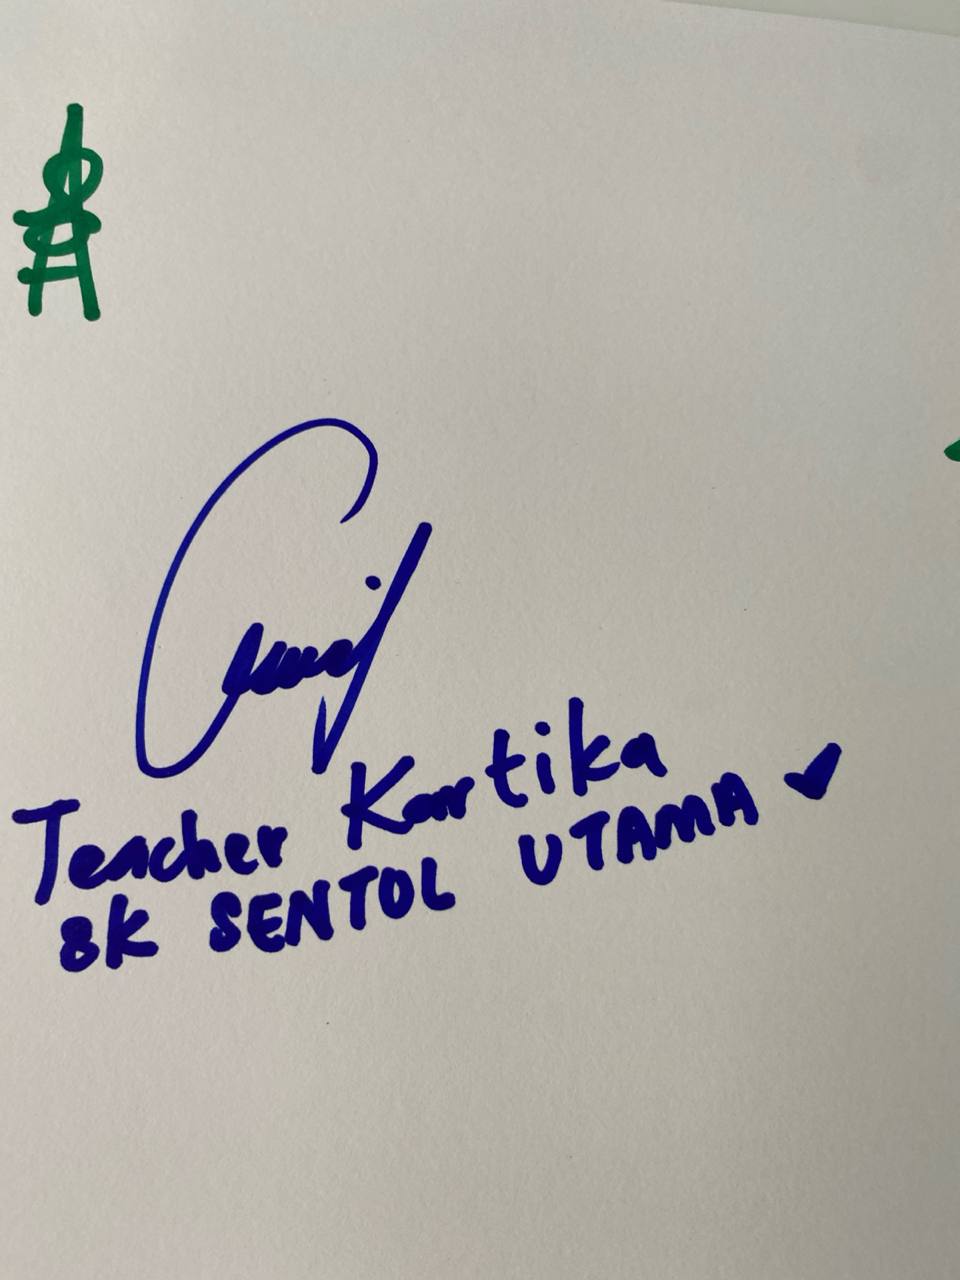 Teacher Kartika
8K SENTOL UTAMA